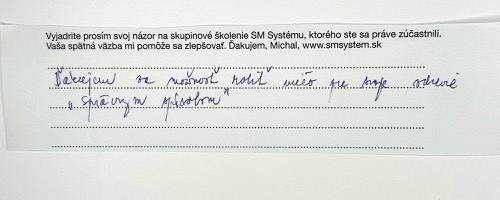 Vyjadrite prosím svoj názor na skupinové školenie SM Systému, ktorého ste sa práve zúčastnili.
Vaša spätná väzba mi pomôže sa zlepšovať. Ďakujem, Michal, www.smsystem.sk
Ďakujem za možnosť robiť niečo pre svoje zdravie
"správnym spôsobom"